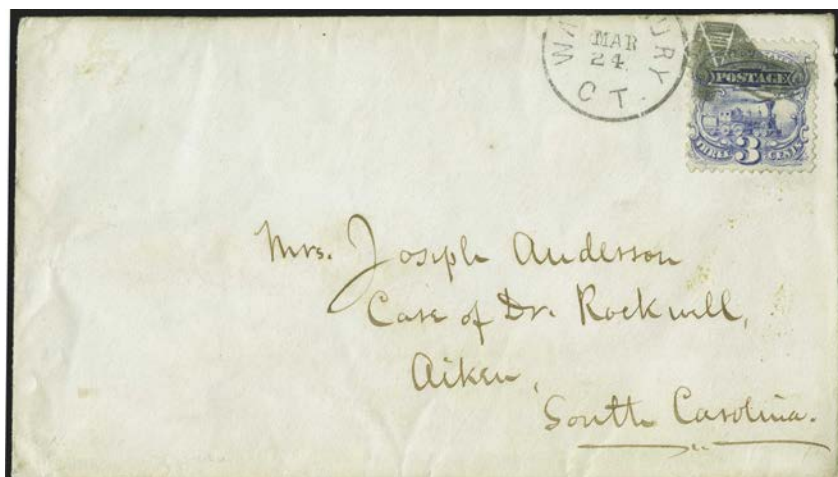 MAR
24
CT.
POSTAGE
THREE 3 CENTS
Mrs. Joseph Anderson
Care of Dr. Rockwell,
Aiken,
South Carolina.